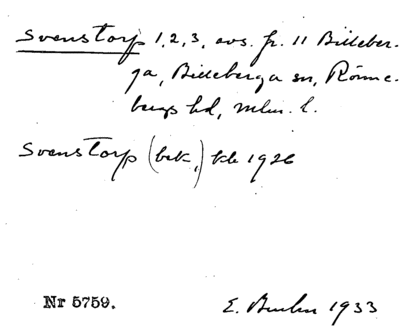 Svenstorp 1, 2, 3, avs. fr. 11 Billeber-
ga, Billeberga sn, Rönne-
bergs hd, Mlm. l.
Svenstorp (bek,) kb 1926
Nr 5759.
E. 1933